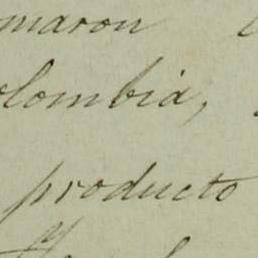 maron
olombia,
producto